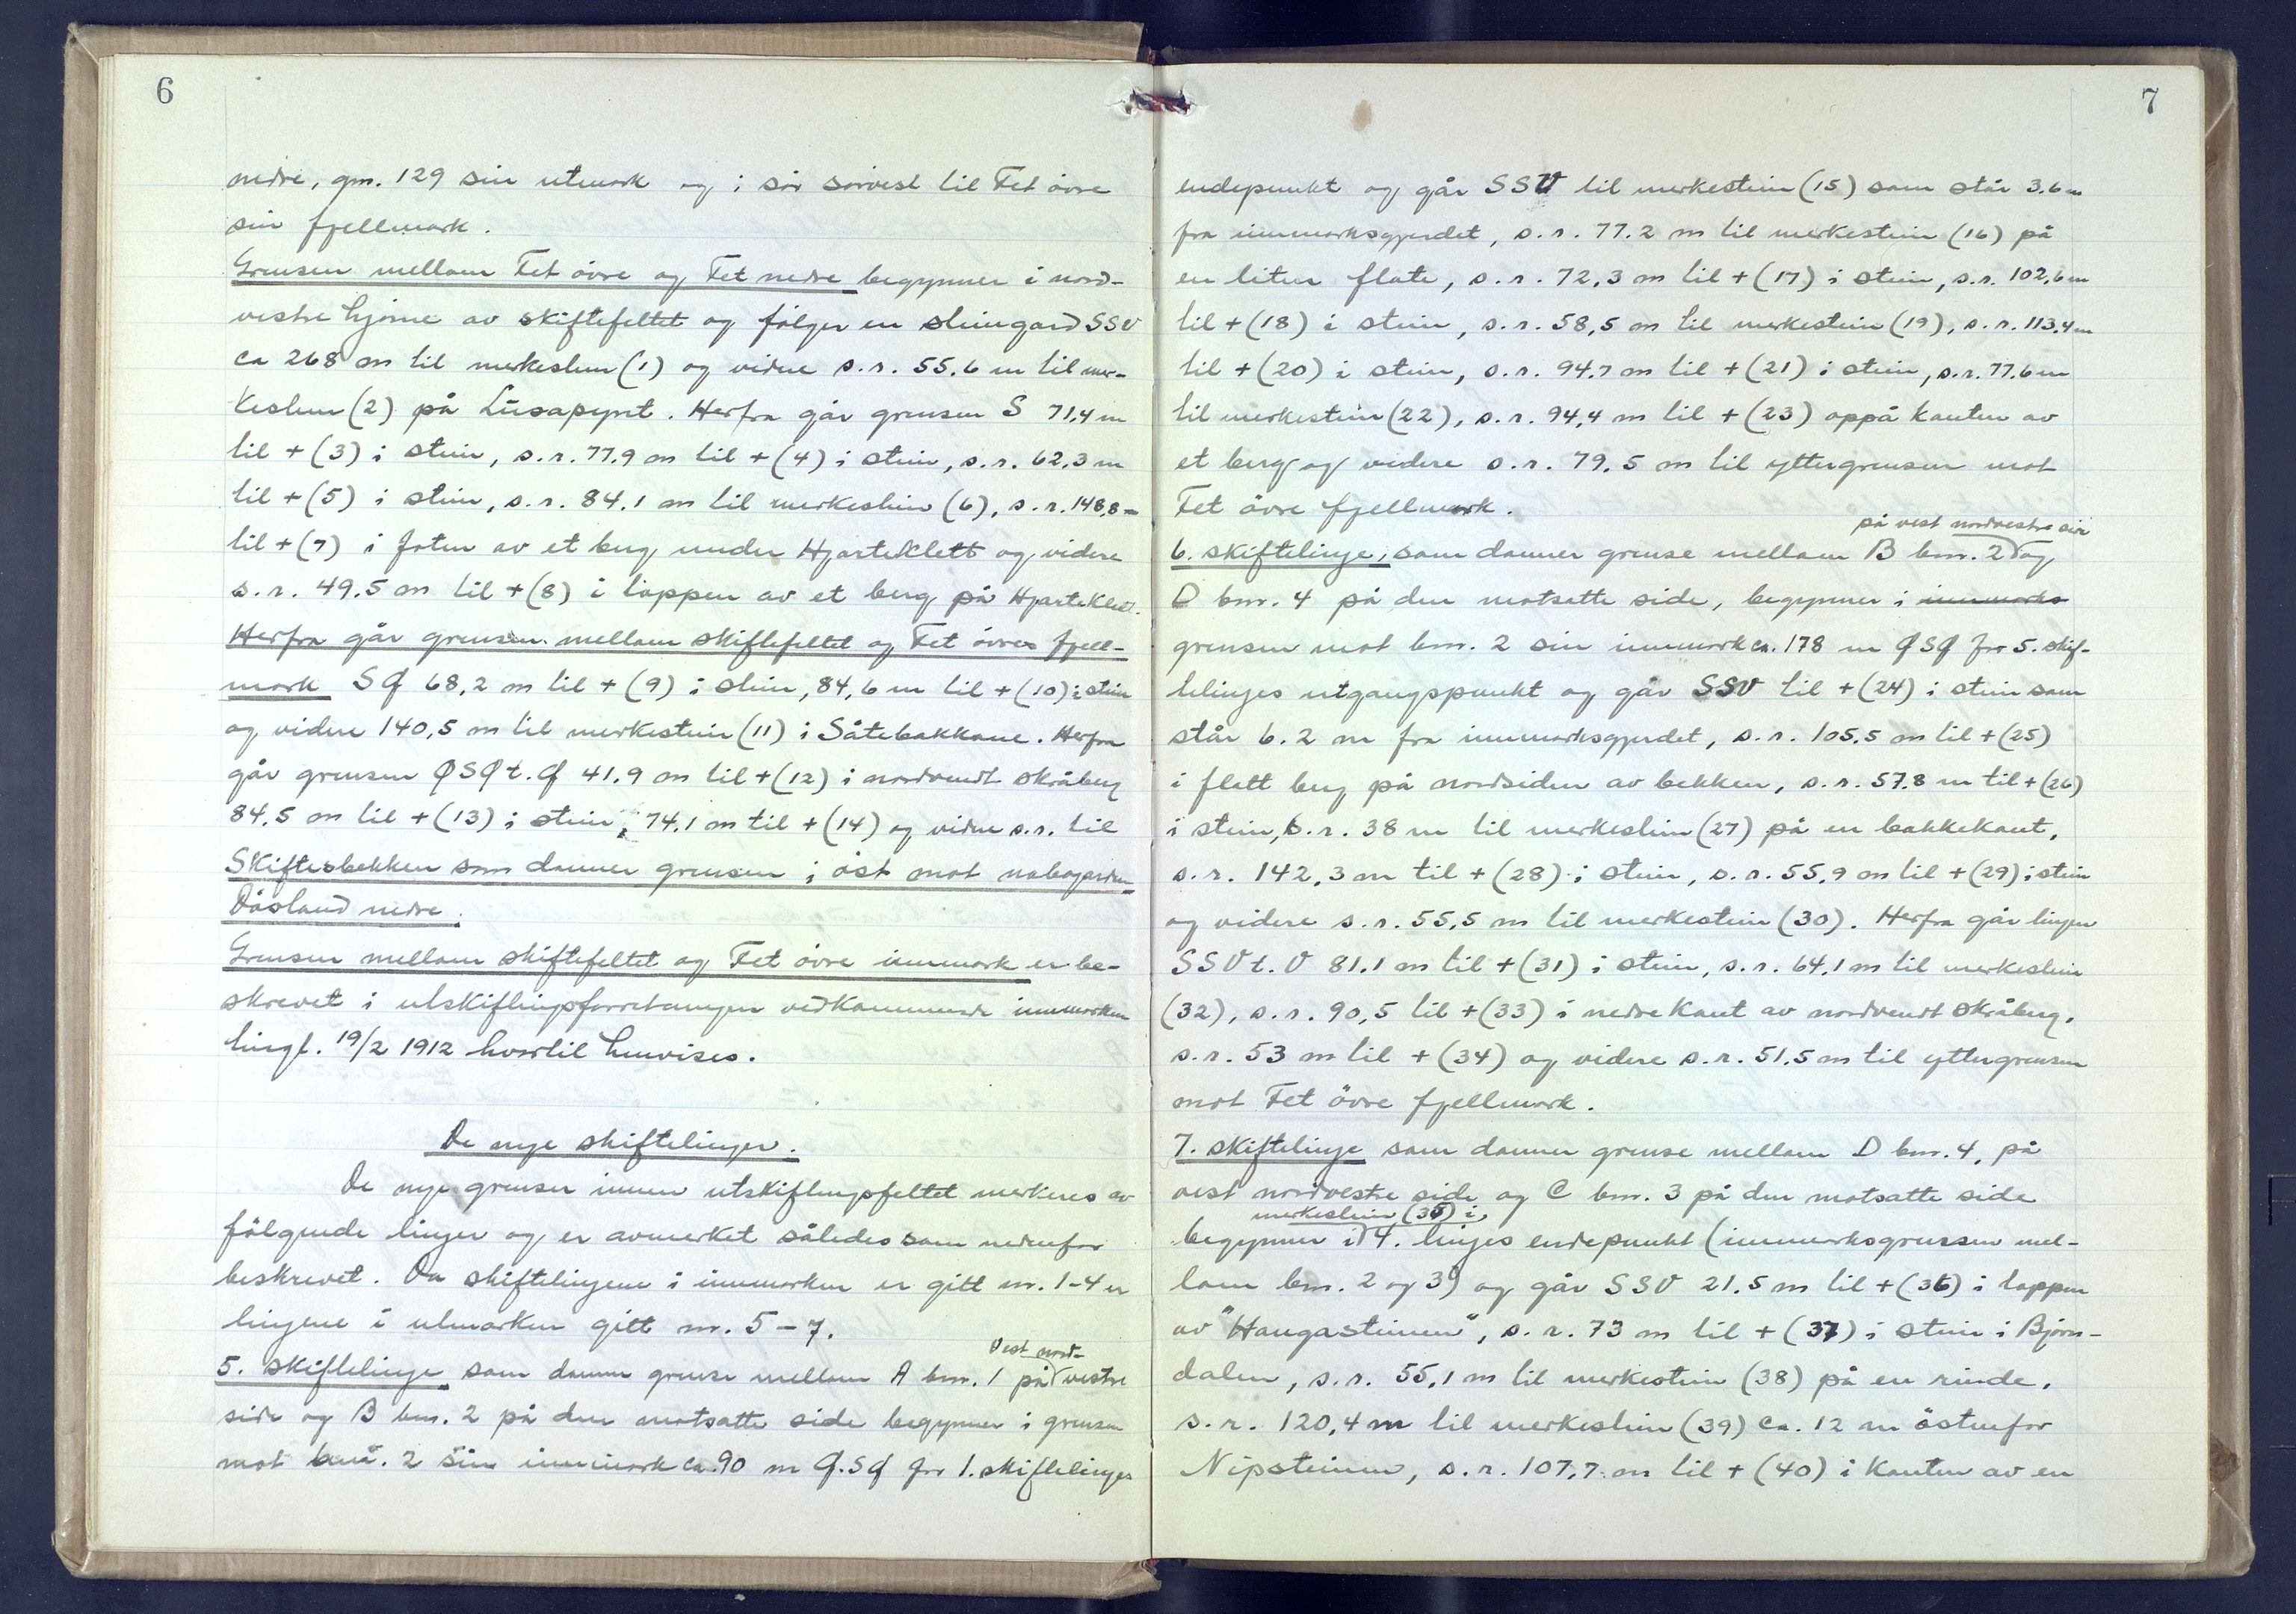 6
nedre, gm. 129 sin utmark og i sör sörvest til Fet övre
sin fjellmark.
Grensen mellem Fet övre og Fet nedre begynner i nord-
vestre hjörne av skiftefeltet og fölger en steingard SSV
ca 268 m til merkestein (1) og videre s.r. 55.6 m til mer-
kestein (2) på Lusapynt. Herfra går grensen S 71,4 m
til + (3) i stein, s.r. 77.9 m til + (4) i stein, s.r. 62.3 m
til + (5) i stein, s.r. 84.1 m til merkestein (6), s.r. 148,8 m
til + (7) i foten av et berg under Hjarteklett og videre
s.r. 49.5 m til + (8) i toppen av et berg på Hjarteklett.
Herfra går grensen mellem skiftefeltet og Fet övres fjell-
mark SØ 68,2 m til + (9) i stein, 84,6 m til + (10) i stein
og videre 140,5 m til merkestein (11) i Såtebakkane. Herfra
går grensen ØSØ t. Ø 41.9 m til + (12) i nordvendt skråberg
84.5 m til + (13) i stein, 74,1 m til + (14) og videre s.r. til
Skiftesbekken som danner grensen i öst mot nabogarden
Dåsland nedre.
Grensen mellem skiftefeltet og Fet övre innmark er be-
skrevet i utskiftingsforretningen vedkommende innmarken
tingl. 19/2 1912 hvortil henvises.
De nye skiftelinjer.
De nye grenser innen utskiftingsfeltet merkeres av
fölgende linjer og er avmerket således som nedenfor
beskrevet. Da skiftelinjene i innmarken er gitt nr. 1-4 er
linjene i utmarken gitt nr. 5-7.
5. skiftelinje som danner grense mellem A bnr. 1 på vest nord-vestre
side og B bnr. 2 på den motsatte side begynner i grensen
mot bnr. 2 sin innmark ca. 90 m Ø.SØ for 1. skiftelinjes
7
endepunkt og går SSV til merkestein (15) som står 3.6 m
fra innmarksgjerdet, s.r. 77.2 m til merkestein (16) på
en liten flate, s.r. 72,3 m til + (17) i stein, s.r. 102,6 m
til + (18) i stein, s.r. 58,5 m til merkestein (19), s.r. 113,4 m
til + (20) i stein, s.r. 94.7 m til + (21) i stein, s.r. 77.6 m
til merkestein (22), s.r. 94,4 m til + (23) oppå kanten av
et berg og videre s.r. 79,5 m til yttergrensen mot
Fet övre fjellmark.
6. skiftelinje, som danner grense mellam B bnr. 2 på vest nordvestre side og
D bnr. 4 på den motsatte side, begynner i innmarks
grensen mot bnr. 2 sin innmark ca. 178 m ØSØ for 5. skif-
telinjes utgangspunkt og går SSV til + (24) i stein som
står 6.2 m fra innmarksgjerdet, s.r. 105.5 m til + (25)
i flatt berg på nordsiden av bekken, s.r. 57.8 m til + (26)
i stein, s.r. 38 m til merkestein (27) på en bakkekant,
s.r. 142,3 m til + (28) i stein, s.r. 55,9 m til + (29) i stein
og videre s.r. 55,5 m til merkestein (30). Herfra går linjen
SSV t. V 81.1 m til + (31) i stein, s.r. 64,1 m til merkestein
(32), s.r. 90,5 til + (33) i nedre kant av nordvendt skråberg,
s.r. 53 m til + (34) og videre s.r. 51.5 m til yttergrensen
mot Fet övre fjellmark.
7. skiftelinje som danner grense mellam D bnr. 4, på
vest nordvestre side og C bnr. 3 på den motsatte side
begynner i merkestein (35) i 4. linjes endepunkt (innmarksgrensen mel-
lam bnr. 2 og 3) og går SSV 21.5 m til + (36) i toppen
av "Haugasteinen", s.r. 73 m til + (37) i stein i Björn-
dalen, s.r. 55,1 m til merkestein (38) på en rinde,
s.r. 120,4 m til merkestein (39) ca. 12 m östenfor
Nipsteinen, s.r. 107,7 m til + (40) i kanten av en